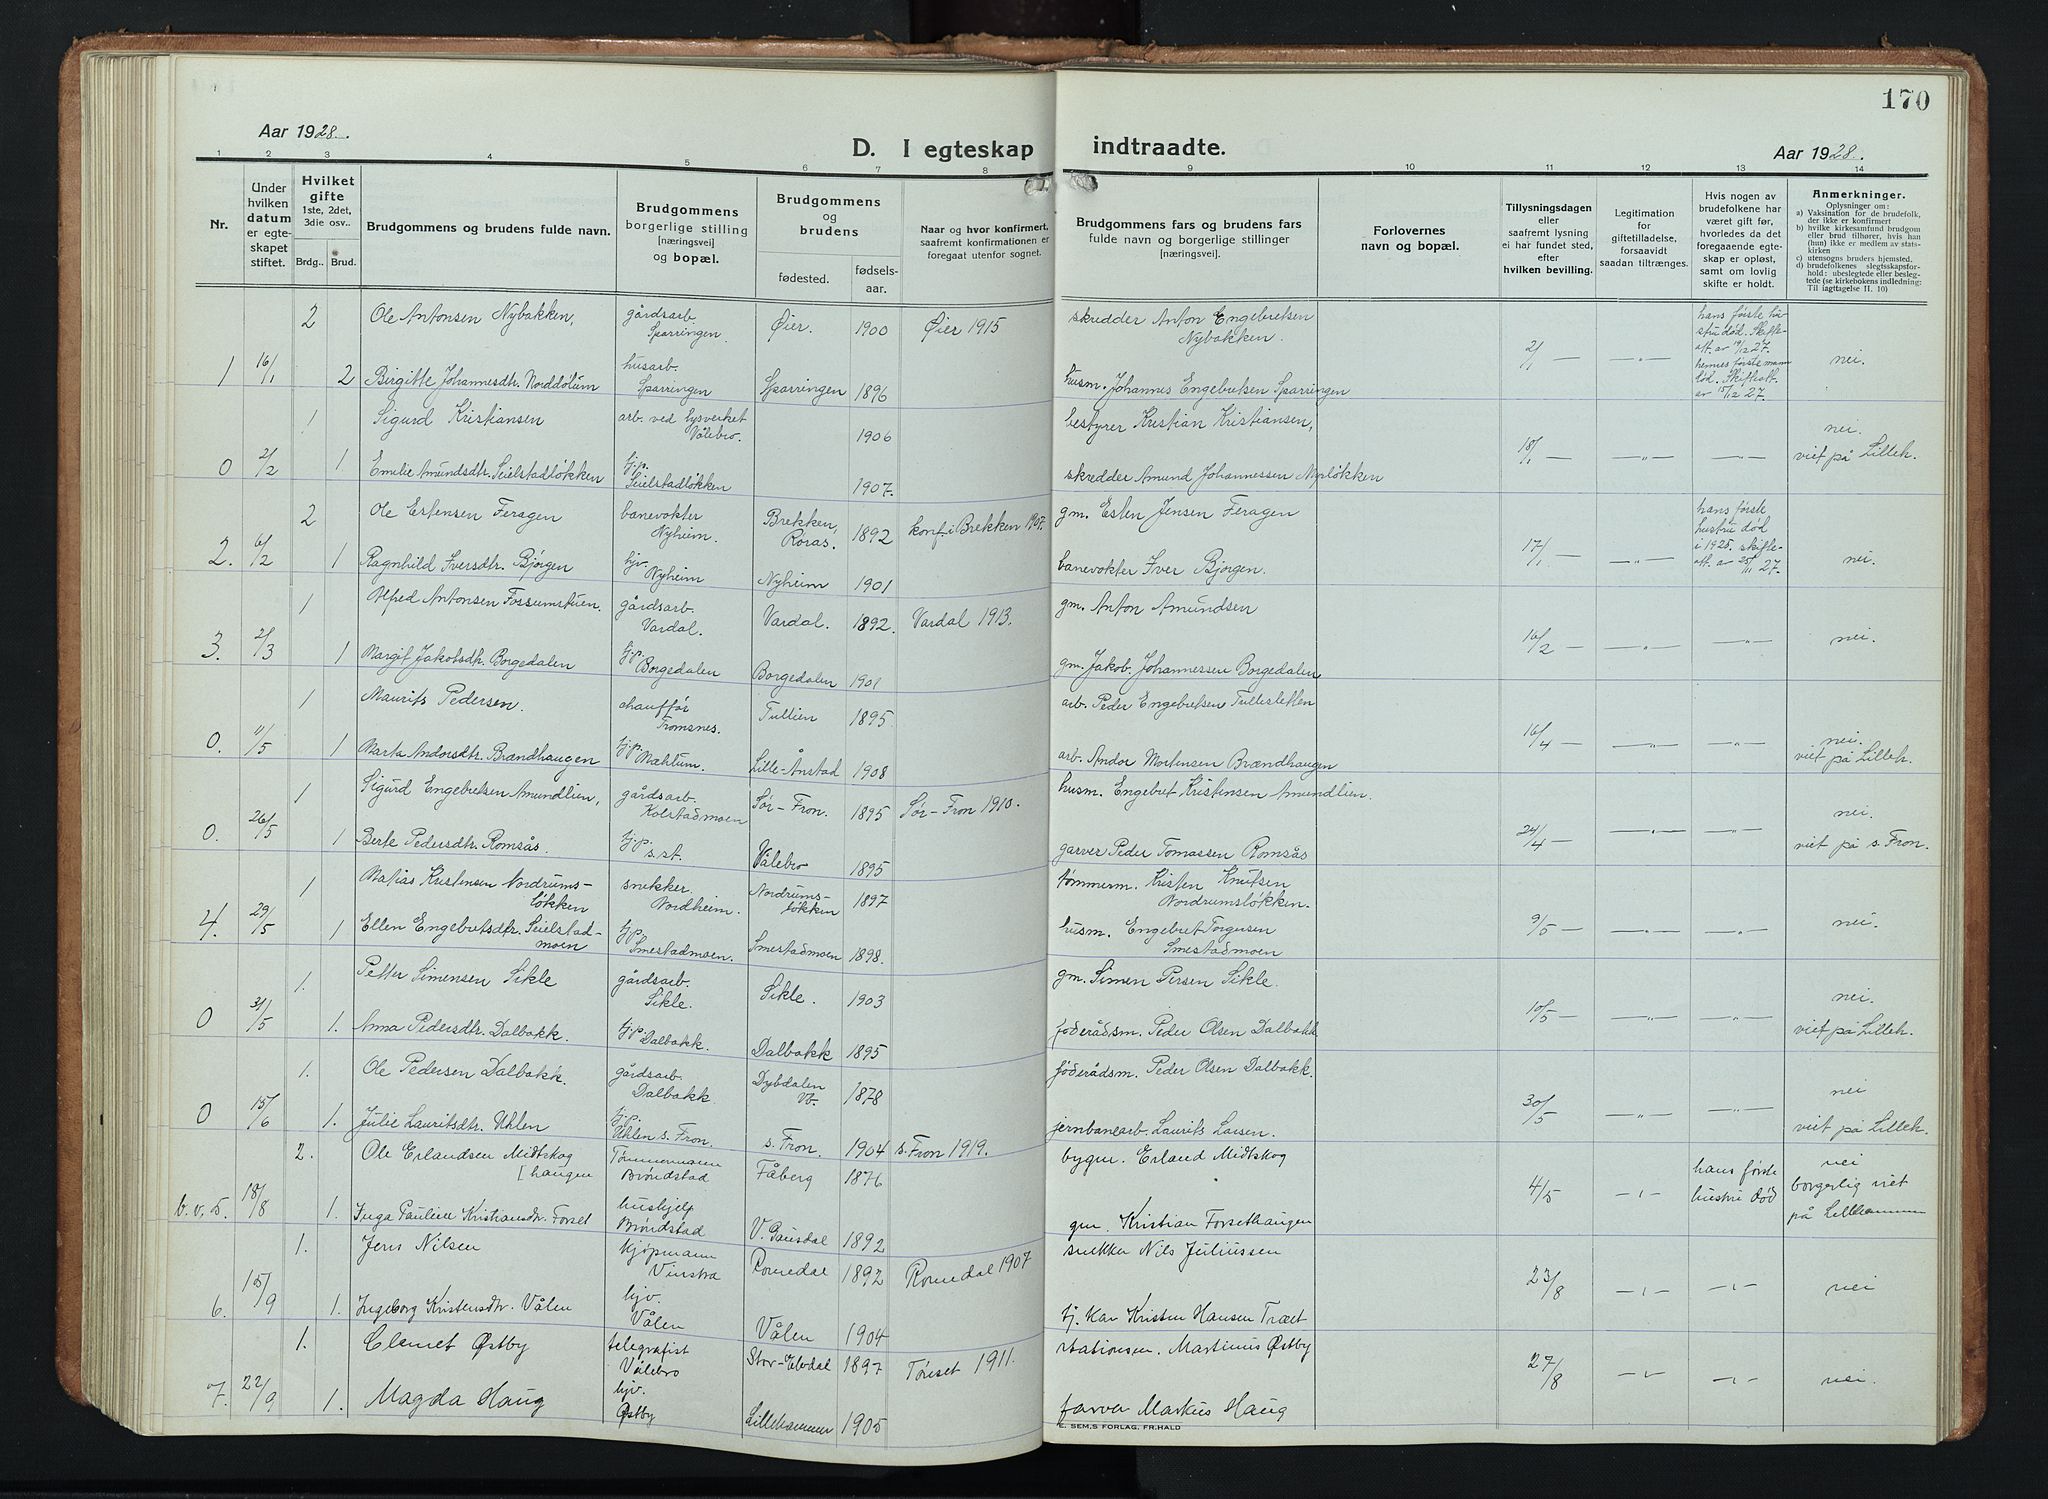 170
Aar 1928.
D. I egteskap indtraadte.
Aar 1928.
1 2 3 4 5 6 7 8 9 10 11 12 13 14
Nr.
Under hvilken datum er egteskapet stiftet.
Hvilket gifte 1ste, 2det, 3die osv..
Brdg.. Brud.
Brudgommens og brudens fulde navn.
Brudgommens borgerlige stilling [næringsvei] og bopæl.
Brudgommens og brudens
fødested. fødselsaar.
Naar og hvor konfirmert, saafremt konfirmationen er foregaat utenfor sognet.
Brudgommens fars og brudens fars fulde navn og borgerlige stillinger [næringsvei].
Forlovernes navn og bopæl.
Tillysningsdagen eller saafremt lysning ei har fundet sted, efter hvilken bevilling.
Legitimation for giftetilladelse, forsaavidt saadan tiltrænges.
Hvis nogen av brudefolkene har været gift før, hvorledes da det foregaaende egteskap er opløst, samt om lovlig skifte er holdt.
Anmerkninger.
Oplysninger om:
a) Vaksination for de brudefolk, der ikke er konfirmert
b) hvilke kirkesamfund brudgom eller brud tilhører, hvis han (hun) ikke er medlem av statskirken
c) utensogns bruders hjemsted.
d) brudefolkenes slegtsskapsforhold: ubeslegtede eller beslegtede (se kirkebokens indledning: Til iagttagelse II. 10)
2 Ole Antonsen Nybakken, gårdsarb. Sparringen. Øier. 1900 Øier 1915 skredder Anton Engebretsen Nybakken. hans første hustru død. Skifteatt. av 19/12 27.
1 16/1 2 Birgitte Johannesdtr. Norddølum husarb. Sparringen Sparringen 1896 husm. Johannes Engebretsen Sparringen 2/1 — —„— hennes første mann død. Skifteatt. av 15/12 27. nei.
1 Sigurd Kristiansen arb. ved lysverket Vålebro. 1906 bestyrer Kristian Kristiansen, nei.
0 2/2 1. Emilie Amundsdtr. Seielstadløkken tj.p. Seielstadløkken 1907. skredder Amund Johannessen Myrløkken 18/1 — —„— —„— viet på Lilleh.
2 Ole Estensen Feragen banevokter Nyheim. Brekken, Røros. 1892 konf. i Brekken 1907. gm. Esten Jensen Feragen hans første hustru død
2. 6/2 1 Ragnhild Iversdtr. Bjørgen hjv. Nyheim Nyheim 1901 banevokter Iver Bjørgen. 17/1 — —„— i 1925. skifteatt. av 25/11 27. nei.
1 Alfred Antonsen Fossumstuen. gårdsarb. Vardal. Vardal. 1892. Vardal 1913. gm. Anton Amundsen
3. 2/3 1 Margit Jakobsdtr. Borgedalen tj.p. Borgedalen Borgedalen 1901 gm. Jakob Johannessen Borgedalen 16/2 — —„— —„— nei.
1 Maurits Pedersen. chauffør Tromsnes. Tullien 1895 arb. Peder Engebretsen Tullesletten
0. 11/5 1 Marta Andorsdtr. Brændhaugen tj.p. Mæhlum. Lille-Anstad 1908 arb. Andor Mortensen Brændhaugen 16/4 — —„— —„— nei. viet på Lilleh.
1 Sigurd Engebretsen Amundlien, gårdsarb. Kolstadmoen Sør-Fron. 1895 Sør-Fron 1910. husm. Engebret Kristensen Amundlien.
0. 26/5 1 Berte Pedersdtr. Romsås. tj.p. s.st. Vålebro 1895 garver Peder Tomassen Romsås 24/4 — —„— —„— nei. viet på s. Fron.
1 Matias Kristensen Nordrumsløkken snekker. Nordheim. Nordrumsløkken 1897 tømmerm. Kristen Knutsen Nordrumsløkken.
4. 29/5 1 Ellen Engebretsdtr. Seielstadmoen tj.p. Smestadmoen. Smestadmoen 1898. husm. Engebret Torgersen Smestadmoen 9/5 — —„— —„— nei.
1. Petter Simensen Sikle gårdsarb. Sikle. Sikle. 1903 gm. Simen Persen Sikle.
0 31/5 1. Anna Pedersdtr. Dalbakk. tj.p. Dalbakk. Dalbakk 1895 føderådsm. Peder Olsen Dalbakk 10/5 — —„— —„— nei. viet på Lilleh.
1. Ole Pedersen Dalbakk. gårdsarb. Dalbakk. Dybdalen Vb. 1878 føderådsm. Peder Olsen Dalbakk.
0 15/6 1. Julie Lauritsdtr. Uhlen tj.p. Uhlen s. Fron. s. Fron. 1904 s. Fron 1919. jernbanearb. Laurits Larsen. 30/5 —„— —„— nei viet på Lilleh.
2. Ole Erlandsen Midtskog [haugen Tømmermann Brøndstad Fåberg 1876 bygm. Erland Midtskog hans første nei
b.v. 5. 18/8 1. Inga Pauline Kristiansdtr. Forset hushjelp Brøndstad V. Gausdal 1892 gm. Kristian Forsethaugen 4/5 —„— hustru død borgerlig viet på Lillehammer
1. Jens Nilsen Kjøpmann Vinstra Romedal 1892 Romedal 1907 snekker Nils Juliussen
6. 15/9 1. Ingeborg Kristensdtr. Vålen hjv. Vålen Vålen 1904 tj. kar Kristen Hansen Træet 23/8 —„— —„— nei
1. Clemet Østby telegrafist Vålebro Stor-Elvdal 1897 Tønset 1911. stationsm. Martinius Østby
7. 22/9 1. Magda Haug hjv. Østby Lillehammer 1905 farver Markus Haug 27/8 —„— —„— nei.
E. SEM,S FORLAG, FR.HALD